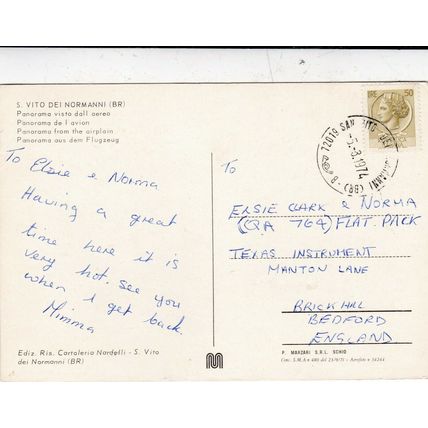 S. VITO DEI NORMANNI (BR)
Panorama visto dall aereo
Panorama de l avion
Panorama from the airplain
Panorama aus dem Flugzeug
To Elsie & Norma
Having a great
time here it is
very hot. see you
when i get back.
Mimma
Ediz. Ris. Cartoleria Nardelli - S. Vito
dei Normanni (BR)
LIRE 50
72019 SAN VITO DEI NORMANNI (BR)
-8.1974
To
ELSIE CLARK & NORMA
(QA 764) FLAT. PACK
TEXAS INSTRUMENT
MANTON LANE
BRICKHILL
BEDFORD
ENGLAND.
P. MARZARI S.R.L. SCHIO